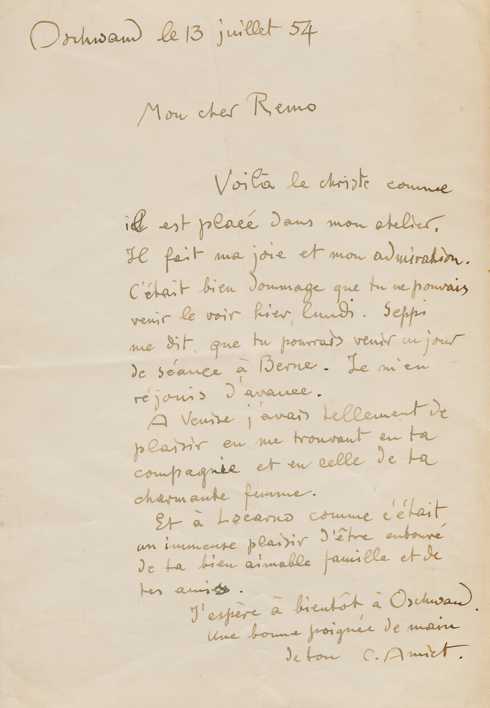 Oschwand le 13 juillet 54
Mon cher Remo
Voilà le christ comme
il est placé dans mon atelier.
Il fait ma joie et mon admiration.
C'était bien dommage que tu ne pouvais
venir le voir hier, lundi. Seppi
me dit, que tu pourrais venir un jour
de séance à Berne. Je m'en
réjouis d'avance.
A Venise j'avais tellement de
plaisir en me trouvant en ta
compagnie et en celle de ta
charmante femme.
Et à Locarno comme c'était
un immense plaisir d'être entouré
de ta bien aimable famille et de
tes amis.
J'espère à bientôt à Oschwand.
Une bonne poignée de main
de ton C. Amiet.